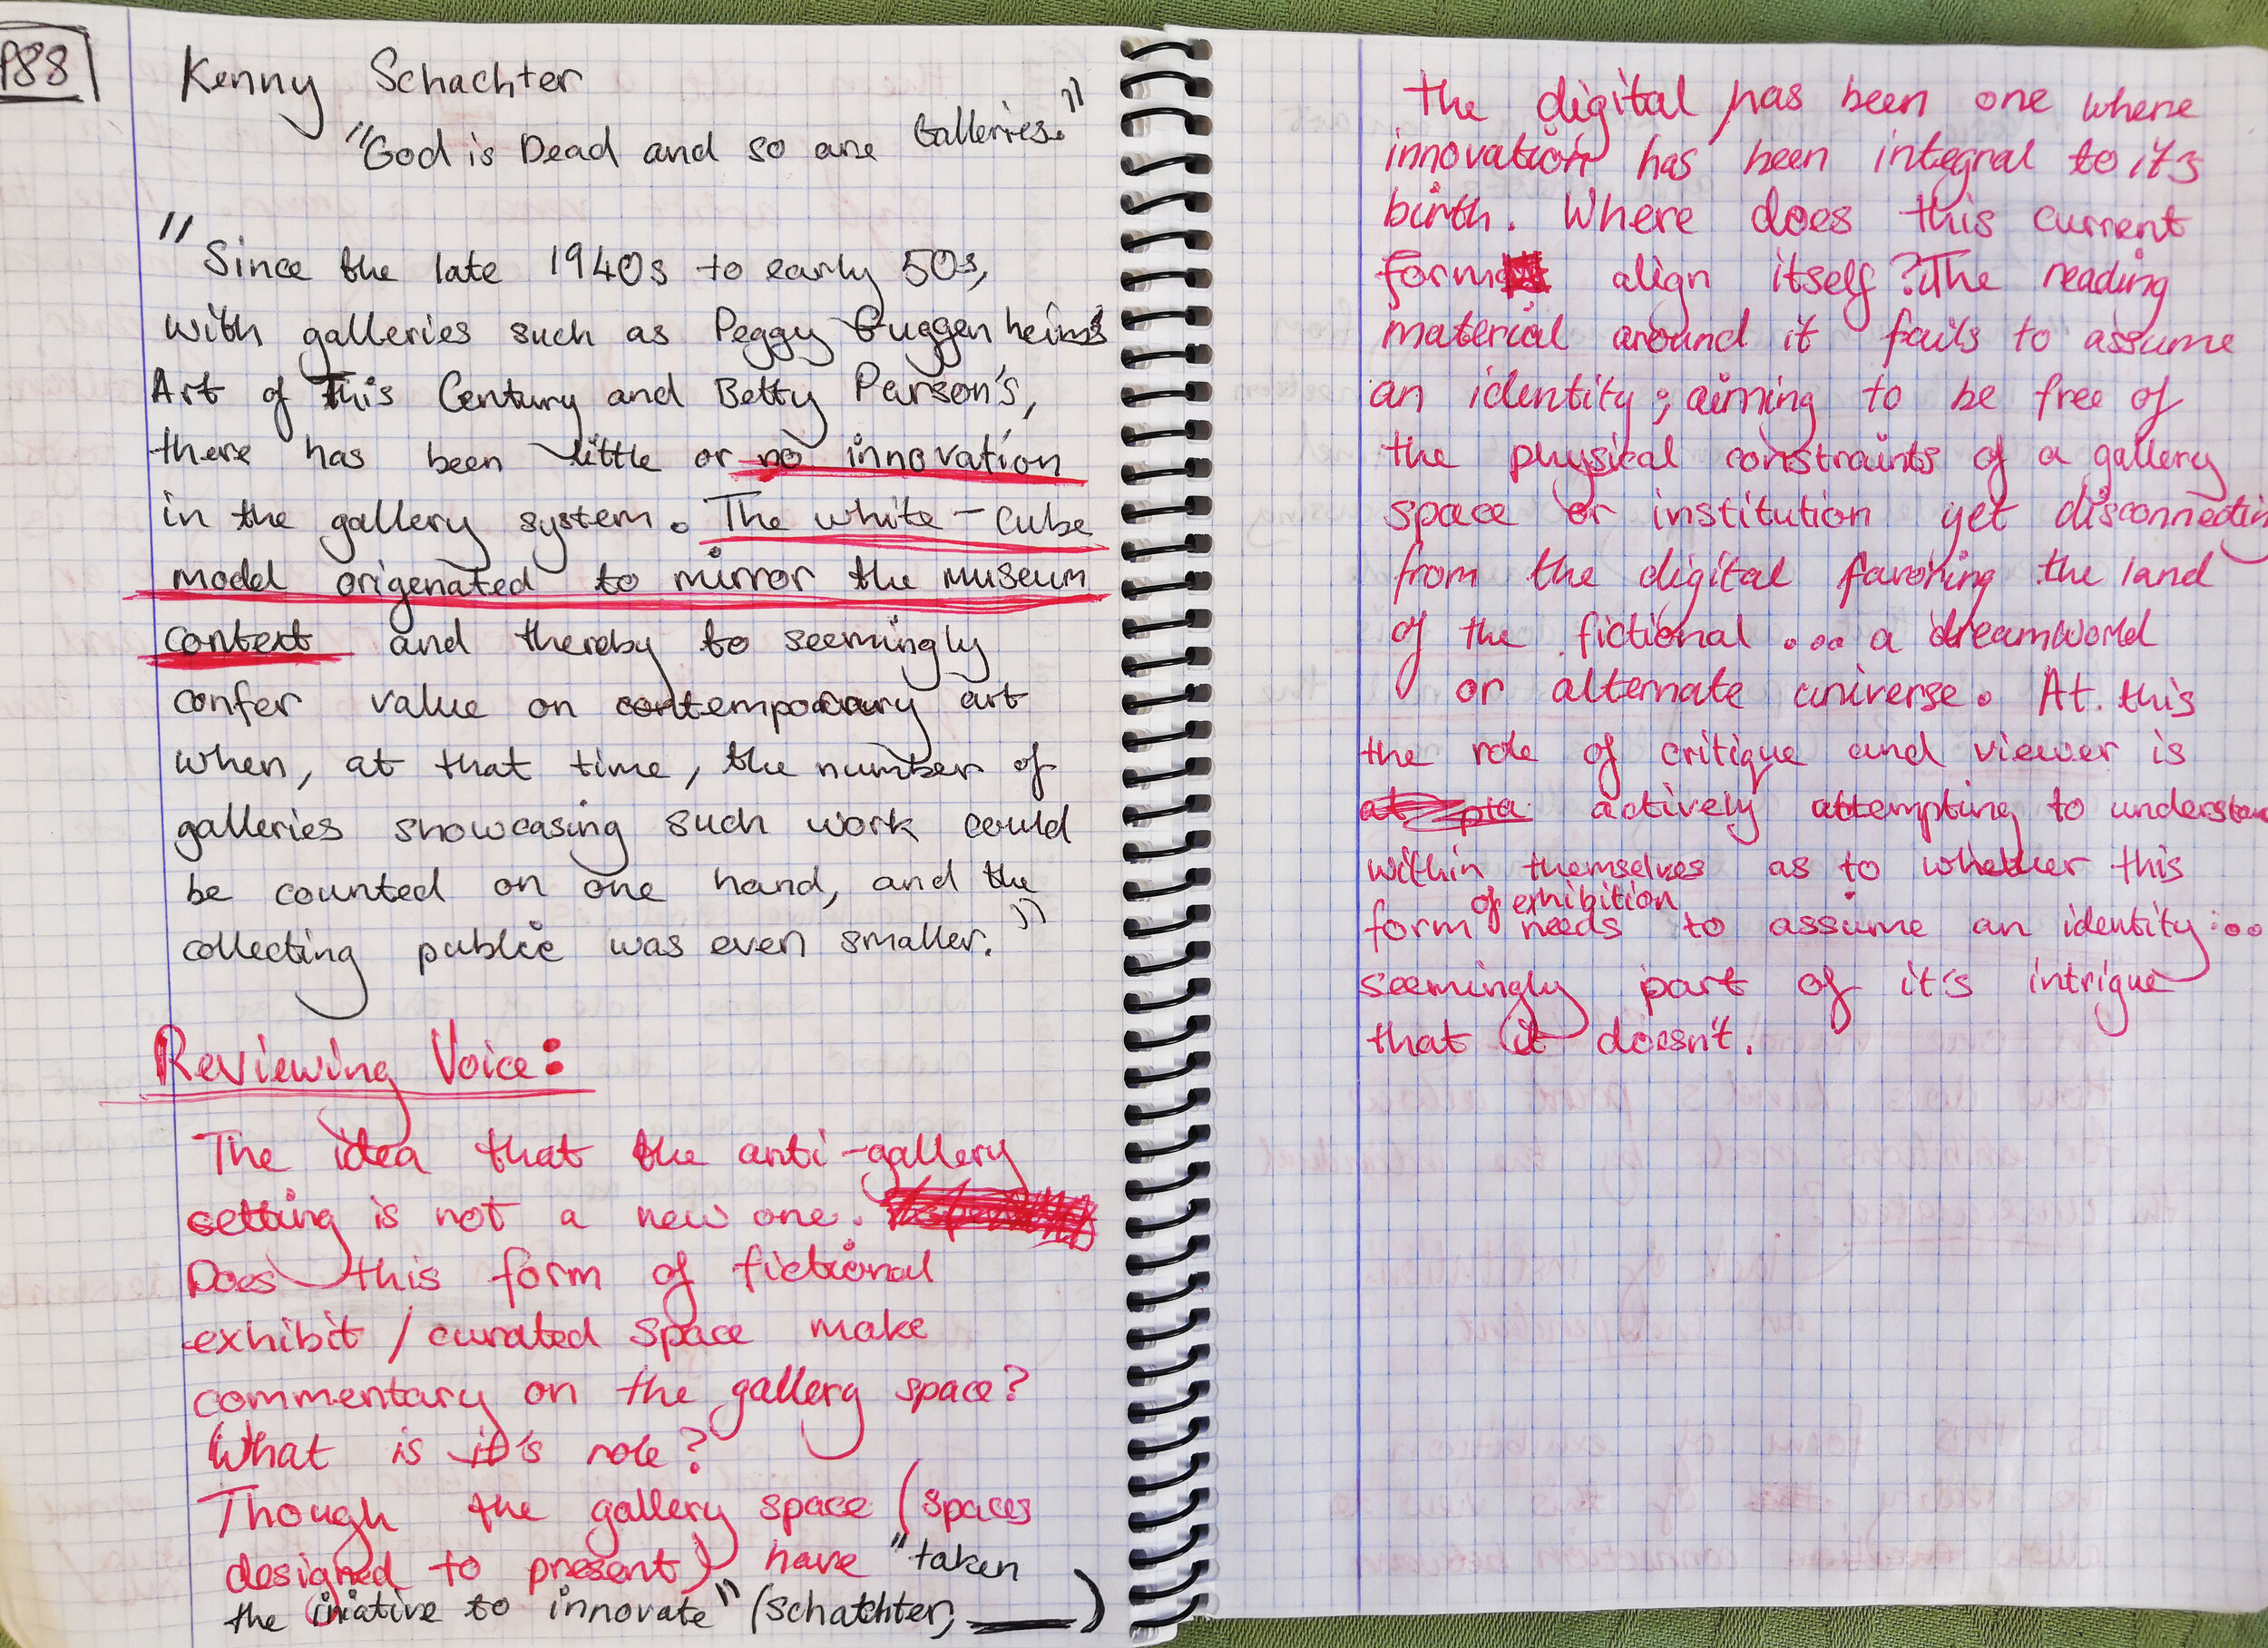 P88
Kenny Schachter
"God is Dead and so are Galleries."
"Since the late 1940s to early 50s,
with galleries such as Peggy Guggenheim's
Art of This Century and Betty Parson's,
there has been little or no innovation
in the gallery system. The white-cube
model origenated to mirror the museum
context and thereby to seemingly
confer value on contemporary art
when, at that time, the number of
galleries showcasing such work could
be counted on one hand, and the
collecting public was even smaller."
Reviewing Voice:
The idea that the anti-gallery
setting is not a new one.
Does this form of fictional
exhibit / curated space make
commentary on the gallery space?
What is it's role?
Though the gallery space (spaces
designed to present) have "taken
the iniative to innovate" (Schachter, ____)
the digital has been one where
innovation has been integral to it's
birth. Where does this current
form align itself? The reading
material around it fails to assume
an identity; aiming to be free of
the physical constraints of a gallery
space or institution yet disconnectin
from the digital favoring the land
of the fictional ... a dreamworld
or alternate universe. At this
the role of critique and viewer is
actively attempting to understan
within themselves as to whether this
form of exhibition needs to assume an identity...
seemingly part of it's intrigue
that it doesn't.